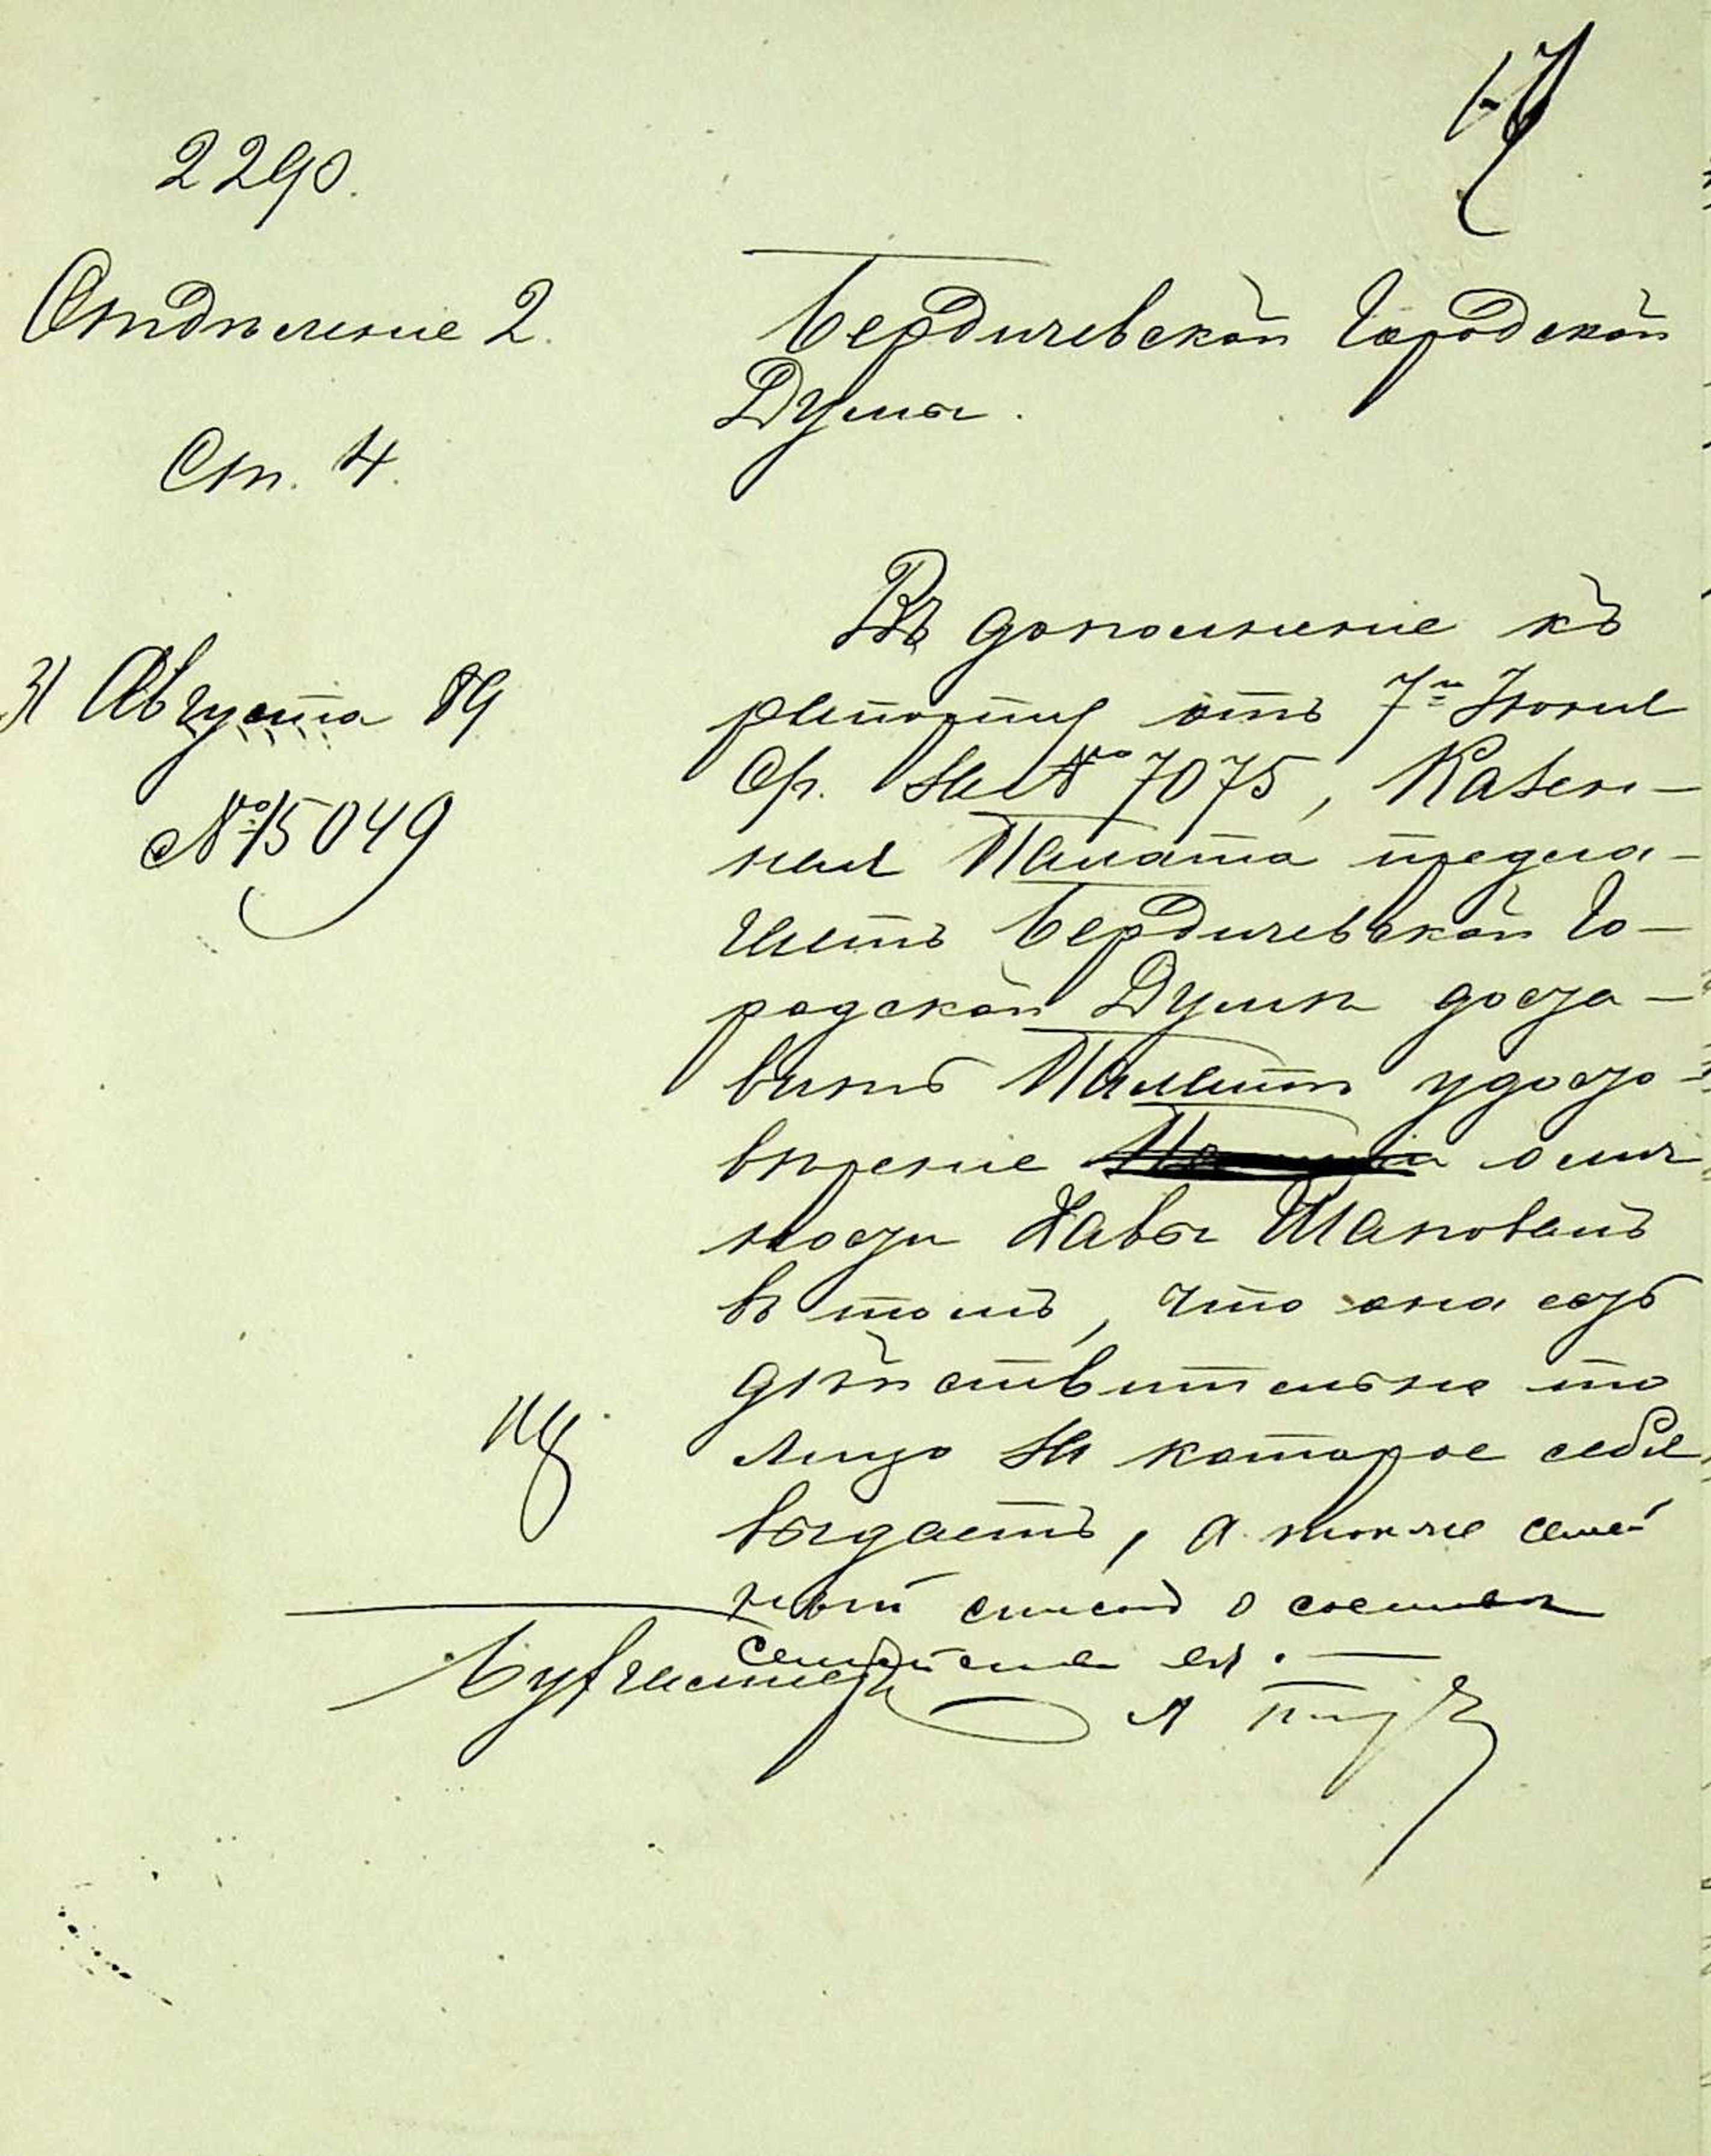 17
2290.
Отдѣленіе 2.
Ст. 4.
31 Августа 89
№ 15049
Бердичевской Городской
Думы.
Въ дополненіе къ
рапорту отъ 7го Іюля
с/г. за № 7075, Казен-
ная Палата предла-
гаетъ Бердичевской Го-
родской Думѣ доста-
вить Палатѣ удосто-
вѣреніе о лич
ности Хавы Шаповалъ
въ томъ, что она есть
дѣйствительно то
лицо за которое себя
выдаетъ, а также семей
ный списокъ о составѣ
семейства ея.